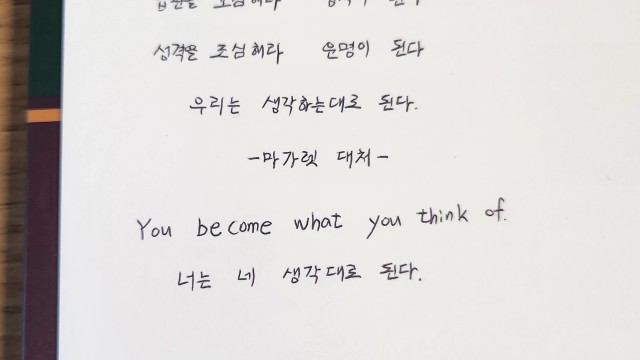 조심해라 된다
성격을 조심해라 운명이 된다
우리는 생각하는대로 된다.
-마가렛 대처-
You become what you think of.
너는 네 생각대로 된다.